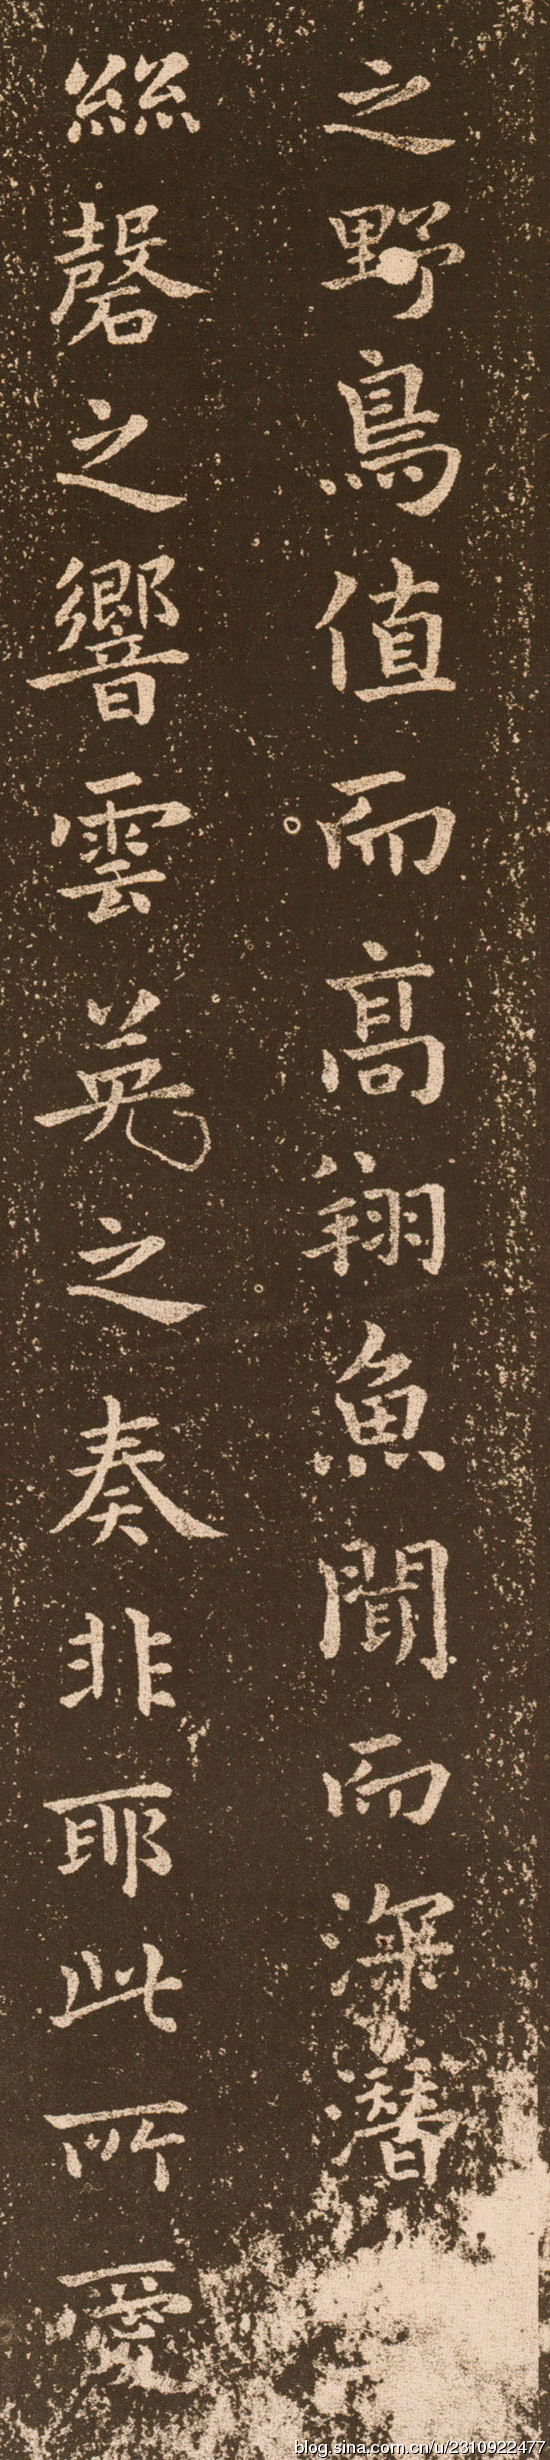 之野鳥值而高翔魚聞而深潛
絲磬之響雲英之奏非耶此所愛
blog.sina.com.cn/u/2310922477